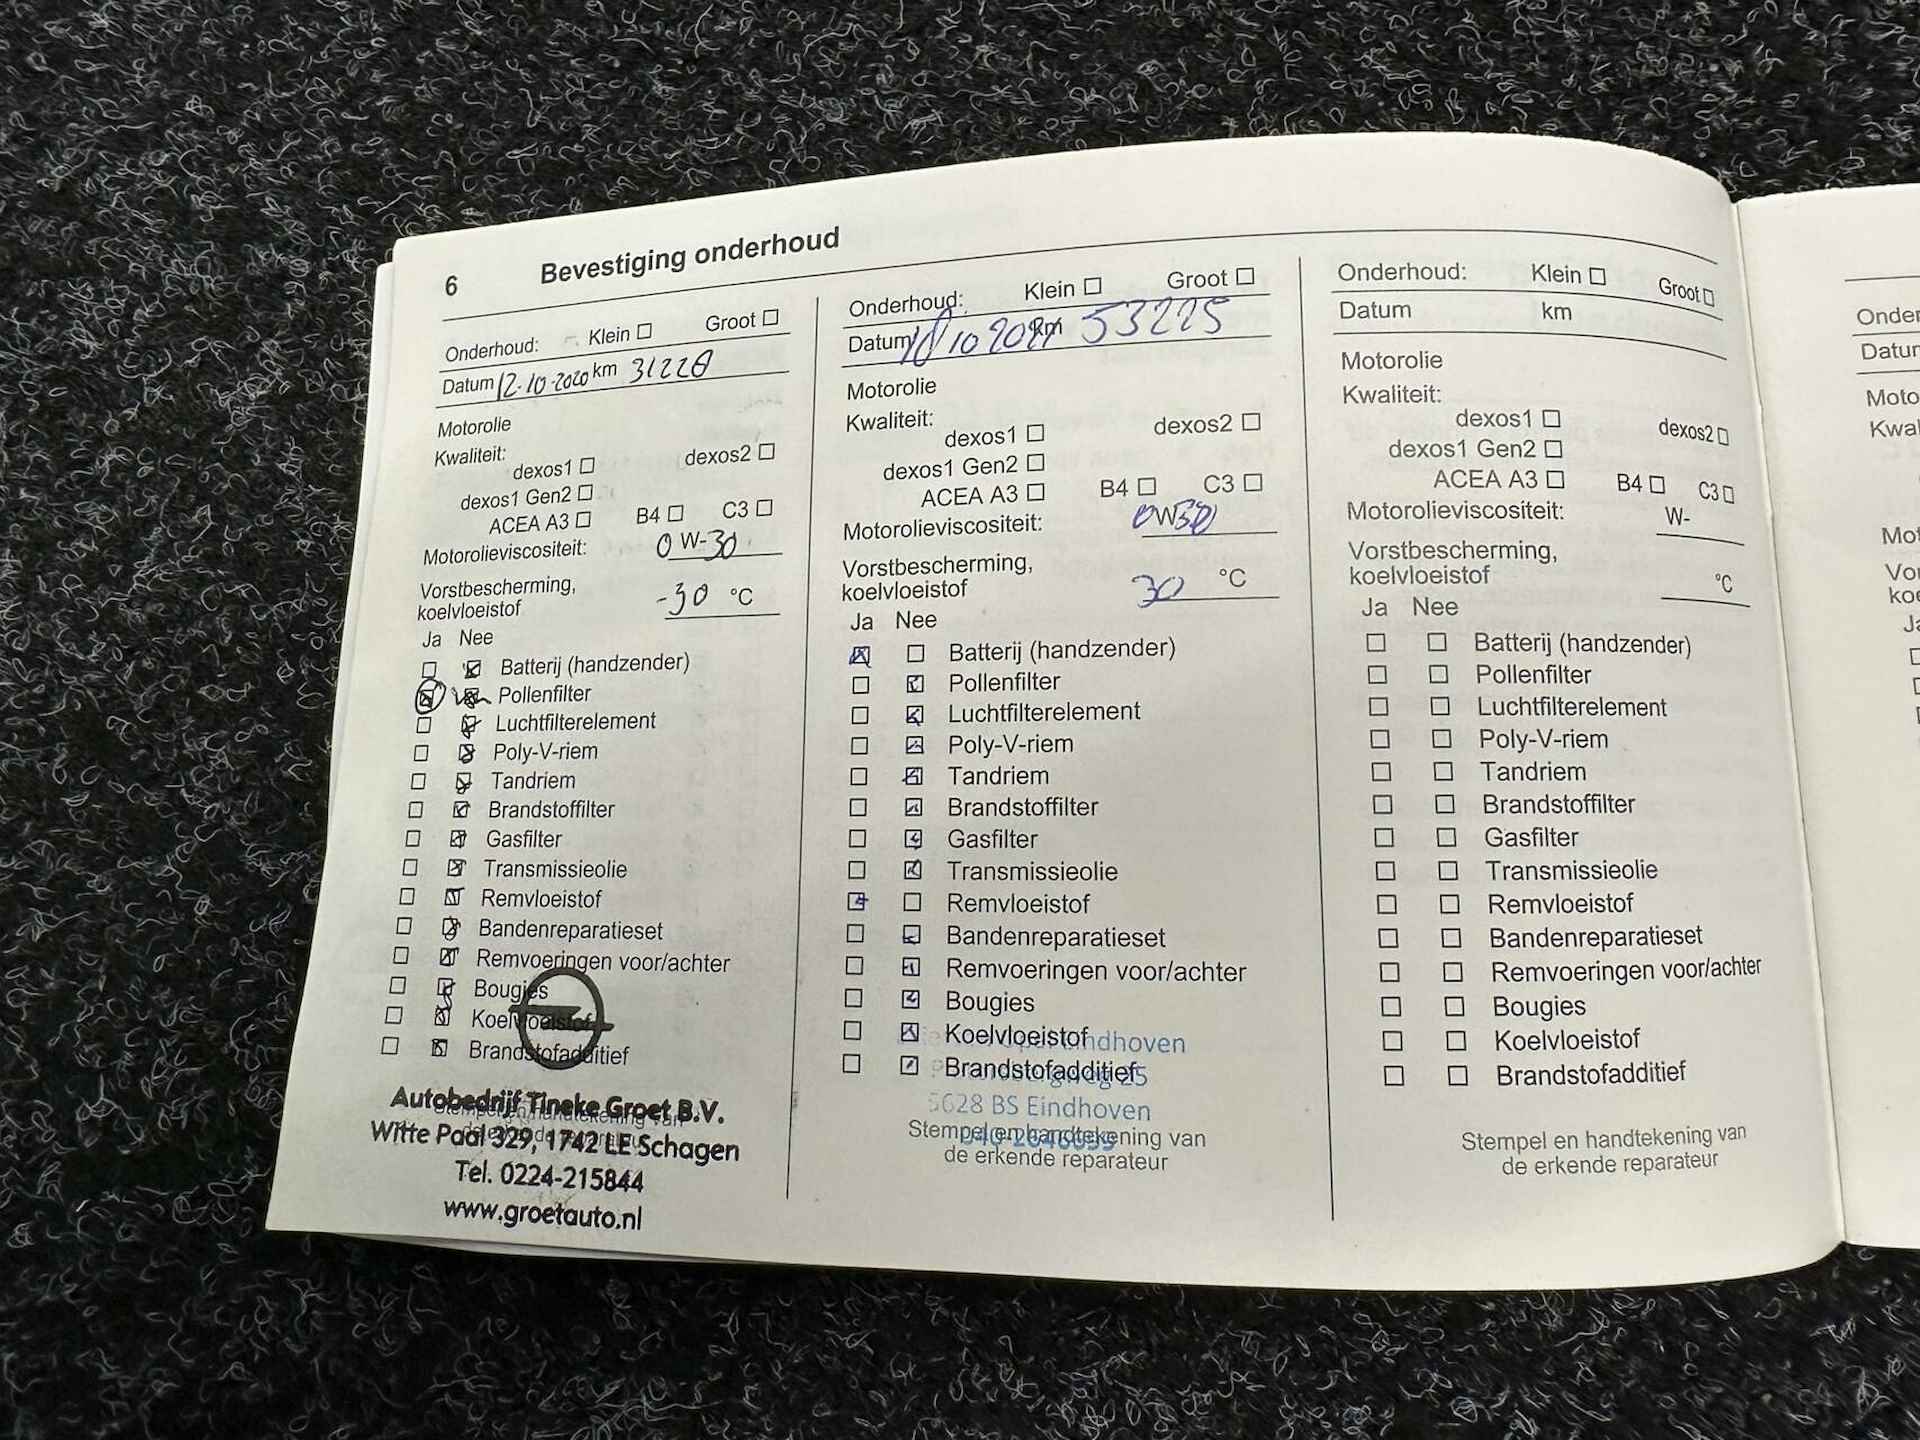 6 Bevestiging onderhoud
Onderhoud: Klein Groot
Datum 12-10-2020 km 31228
Motorolie
Kwaliteit:
dexos1 dexos2
dexos1 Gen2
ACEA A3 B4 C3
Motorolieviscositeit: 0 W-30
Vorstbescherming,
koelvloeistof -30 °C
Ja Nee
Batterij (handzender)
Pollenfilter
Luchtfilterelement
Poly-V-riem
Tandriem
Brandstoffilter
Gasfilter
Transmissieolie
Remvloeistof
Bandenreparatieset
Remvoeringen voor/achter
Bougies
Koelvloeistof
Brandstofadditief
Stempel en handtekening van
de erkende reparateur
Autobedrijf Tineke Groet B.V.
Witte Paal 329, 1742 LE Schagen
Tel. 0224-215844
www.groetauto.nl
Onderhoud: Klein Groot
Datum 10 km 53225
Motorolie
Kwaliteit:
dexos1 dexos2
dexos1 Gen2
ACEA A3 B4 C3
Motorolieviscositeit: 0W30
Vorstbescherming,
koelvloeistof 30 °C
Ja Nee
Batterij (handzender)
Pollenfilter
Luchtfilterelement
Poly-V-riem
Tandriem
Brandstoffilter
Gasfilter
Transmissieolie
Remvloeistof
Bandenreparatieset
Remvoeringen voor/achter
Bougies
Koelvloeistof
Brandstofadditief
Opel Eindhoven
25
5628 BS Eindhoven
Stempel en handtekening van
de erkende reparateur
Onderhoud: Klein Groot
Datum km
Motorolie
Kwaliteit:
dexos1 dexos2
dexos1 Gen2
ACEA A3 B4 C3
Motorolieviscositeit: W-
Vorstbescherming,
koelvloeistof °C
Ja Nee
Batterij (handzender)
Pollenfilter
Luchtfilterelement
Poly-V-riem
Tandriem
Brandstoffilter
Gasfilter
Transmissieolie
Remvloeistof
Bandenreparatieset
Remvoeringen voor/achter
Bougies
Koelvloeistof
Brandstofadditief
Stempel en handtekening van
de erkende reparateur